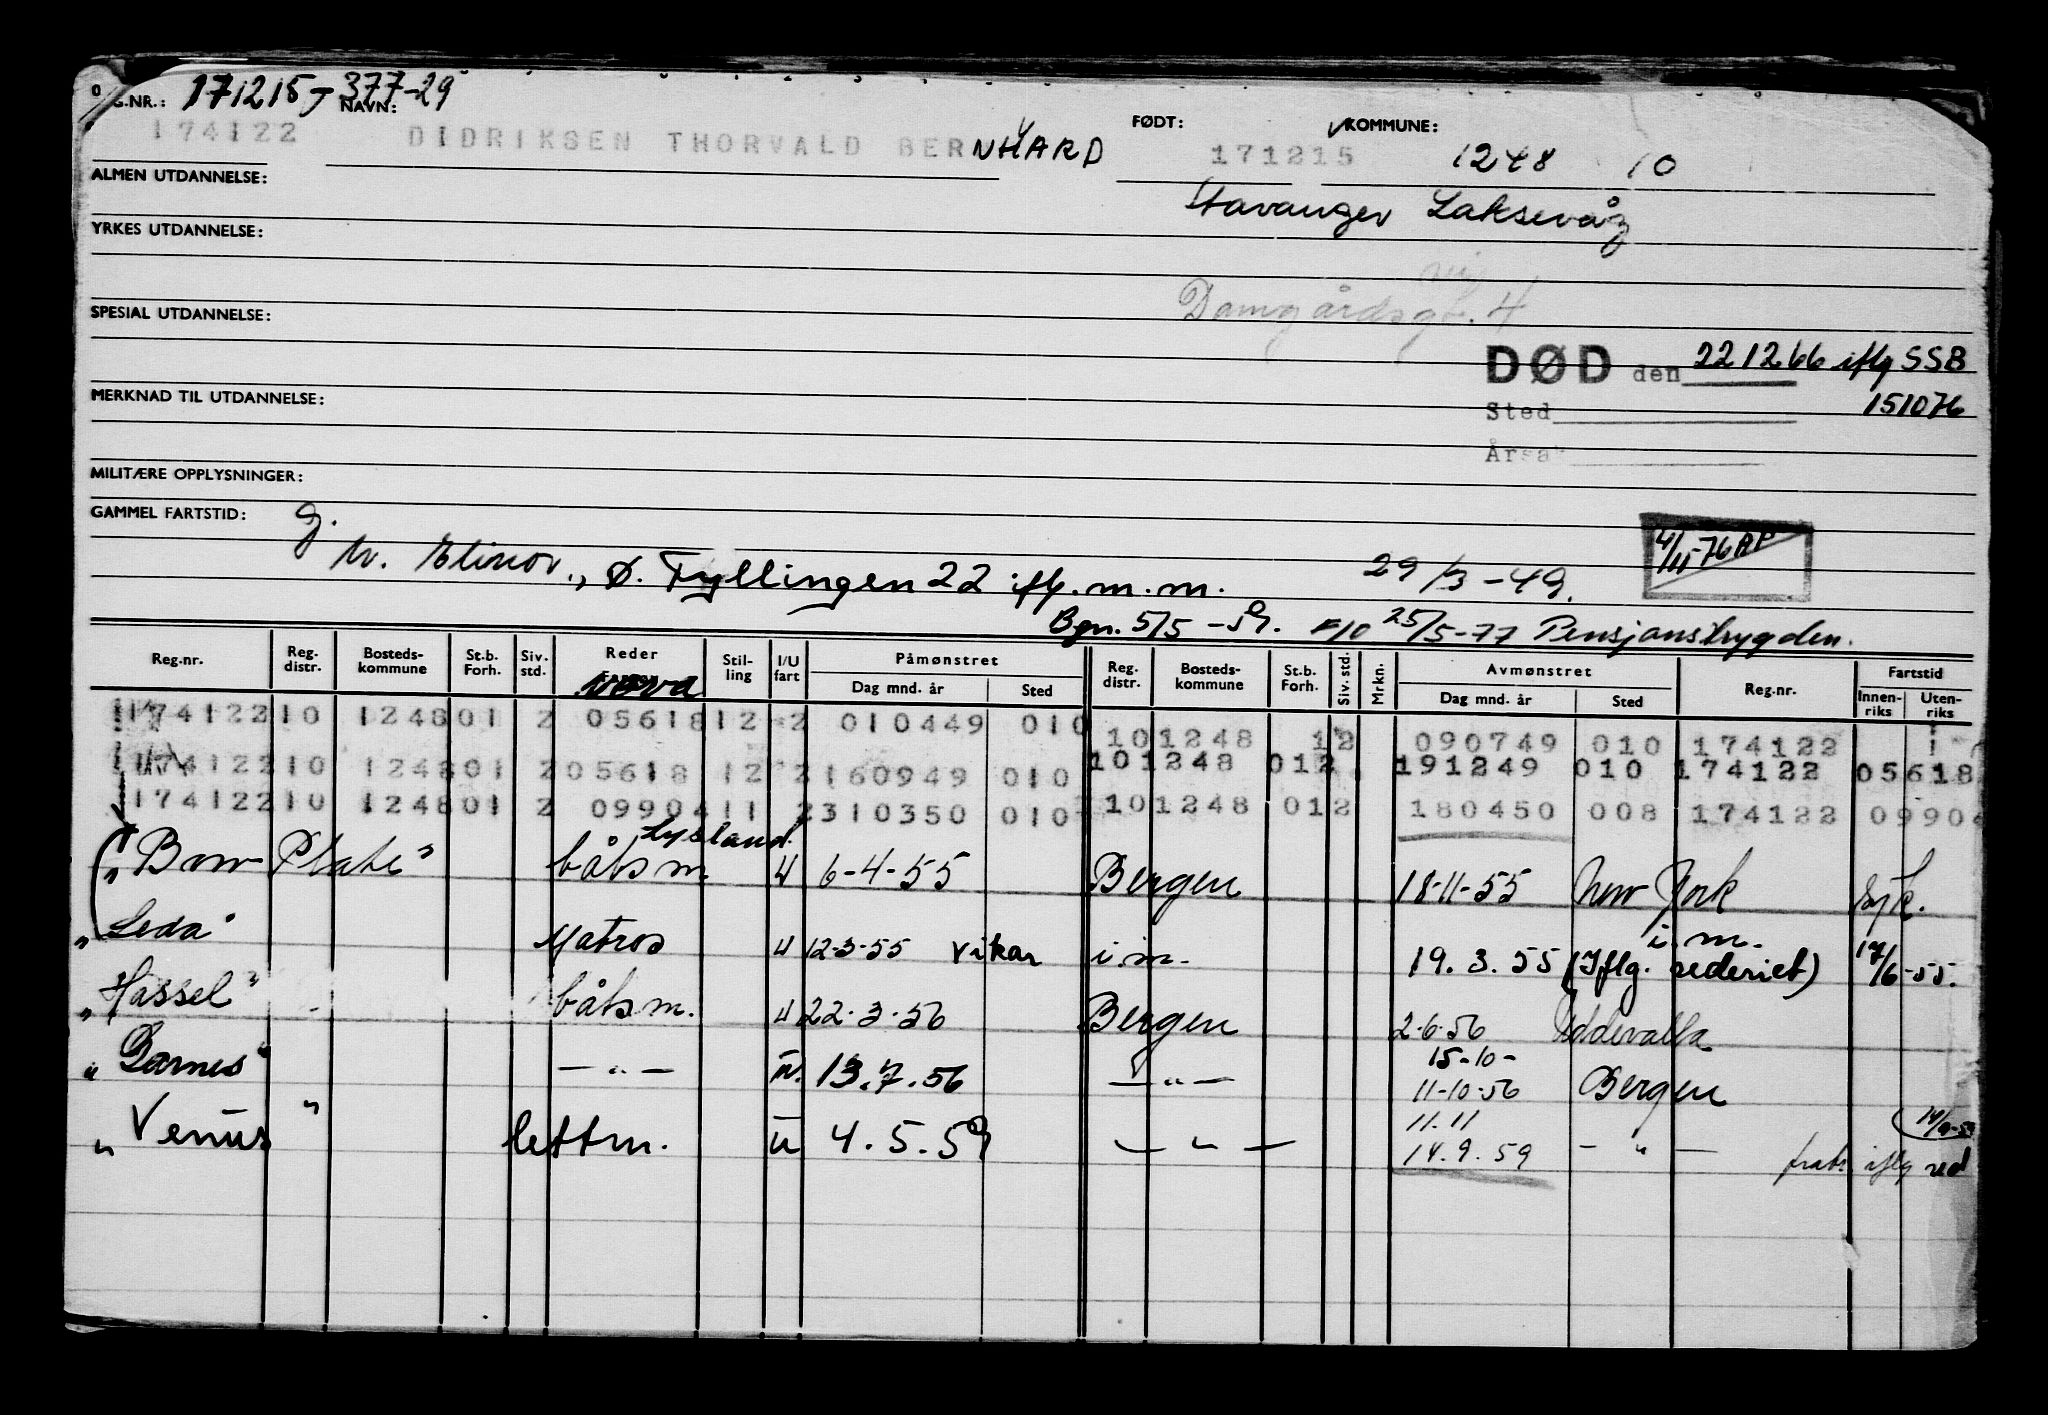 G.NR.: 171215-377-29 NAVN: FØDT: KOMMUNE:
174122 DIDRIKSEN THORVALD BERNHARD 171215 1248 10
ALMEN UTDANNELSE: Stavanger Laksevåg
YRKES UTDANNELSE:
Damgårdsgt. 4
SPESIAL UTDANNELSE:
DØD den 221266 iflg SSB
MERKNAD TIL UTDANNELSE: Sted 151076
Årsak
MILITÆRE OPPLYSNINGER:
GAMMEL FARTSTID: G.
4/11-76 AP
M. Elinor., Ø. Fyllingen 22 iflg. m.m. 29/3-49.
Bgn. 5/5-59. F/O 25/5-77 Pensjonstrygden.
Reg.nr. Reg. distr. Bosteds-kommune St.b. Forh. Siv. std. Reder Stil-ling I/U fart Påmønstret Dag mnd. år Sted Reg. distr. Bosteds-kommune St.b. Forh. Siv. std. Mrkn. Avmønstret Dag mnd. år Sted Reg.nr. Fartstid Innen-riks Uten-riks
174122 10 1248 01 2 05618 12 2 010449 010 10 1248 12 090749 010 174122
174122 10 1248 01 2 05618 12 2 160949 010 10 1248 012 191249 010 174122 05618
174122 10 1248 01 2 09904 11 2 310350 010 10 1248 012 180450 008 174122 09904
Lysland
"Bow Plate" båtsm. U 6-4-55 Bergen 18-11-55 New York syk.
"Leda" Matros U 12-3-55 vikar i.m. 19.3.55 i.m. (Iflg. rederiet) 17/6-55.
"Hassel" båtsm. U 22-3-56 Bergen 2-6-56 Uddevalla
15-10-
"Garnes" — " — U. 13.7.56 — " — 11-10-56 Bergen
11.11 14/9-59
"Venus" lettm. U 4.5.59 — " — 14.9.59 — " — fratr. iflg red